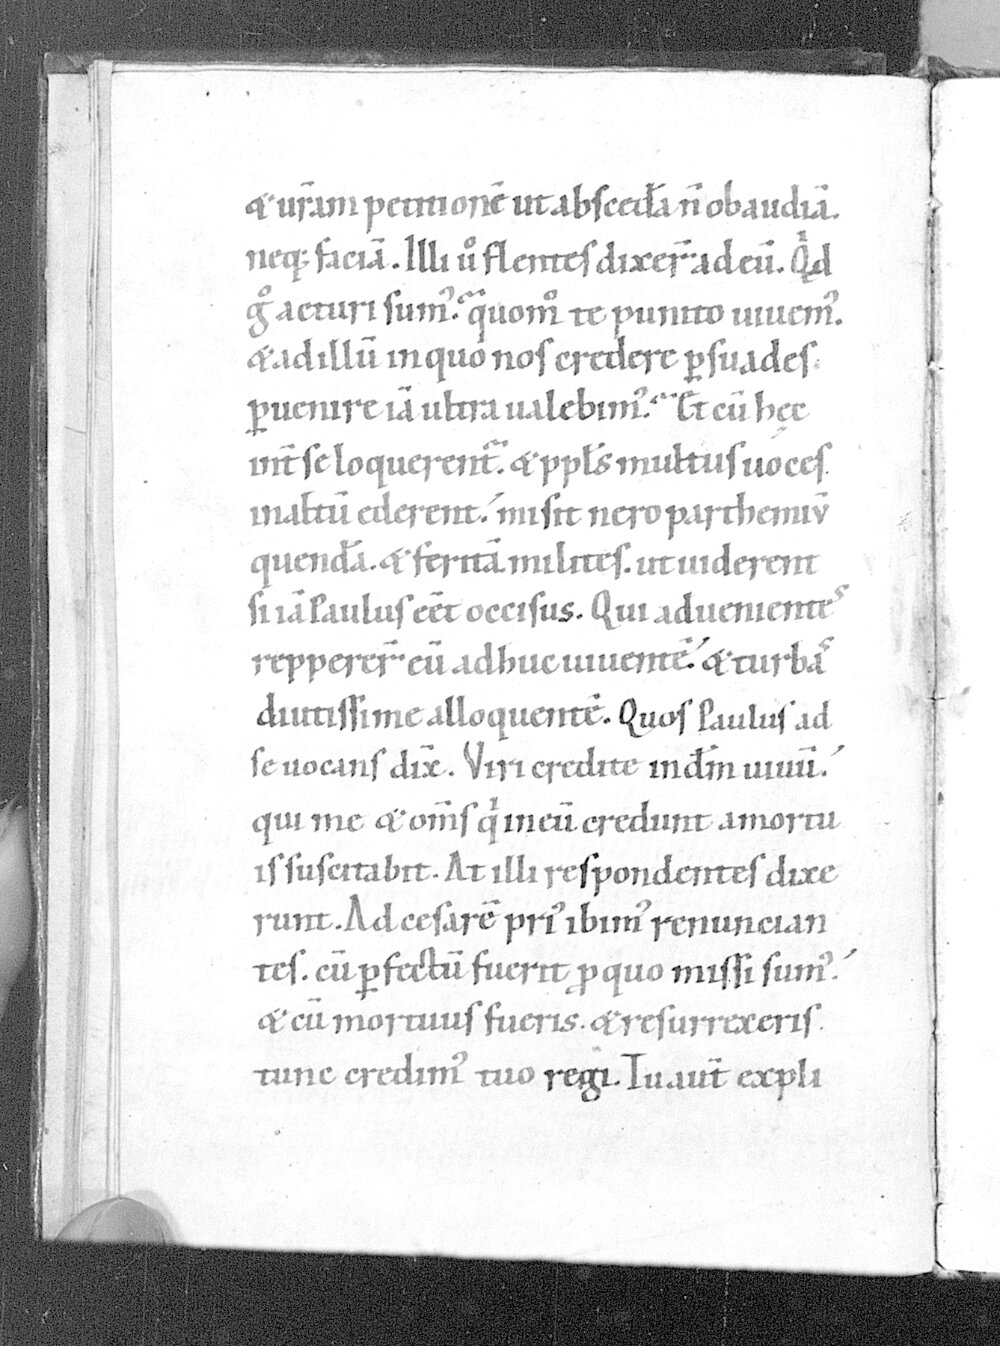 & ur̄am petitionē ut absceda̅ n̄ obaudiā.
neq; faciā. Illi ů flentes dixer̄ ad eū. Qͥd
g̊ acturi sumꝰ. quom̊ te punito uiuemꝰ.
& ad illū in quo nos credere ꝑsuades
ꝑuenire iā ultra ualebimꝰ. Et cū hęc
int̄ se loquerent̄. & ppl̄s multus uoces
in altū ederent. misit nero parthemiū
quendā. & feritā milites. ut uiderent
si iā Paulus eēt occisus. Qui aduenientes
repperer̄ eū adhuc uiuentē. & turbas
diutissime alloquentē. Quos Paulus ad
se uocans dix̄. Viri credite in dm̄ uiuū.
qui me & om̄s qͥ in eū credunt a mortu
is suscitabit. At illi respondentes dixe
runt. Ad cesarē priꝰ ibimꝰ renuncian
tes. cū ꝑfectū fuerit ꝓ quo missi sumꝰ.
& cū mortuus fueris. & resurrexeris.
tunc credimꝰ tuo regi. Tu aut̄ expli